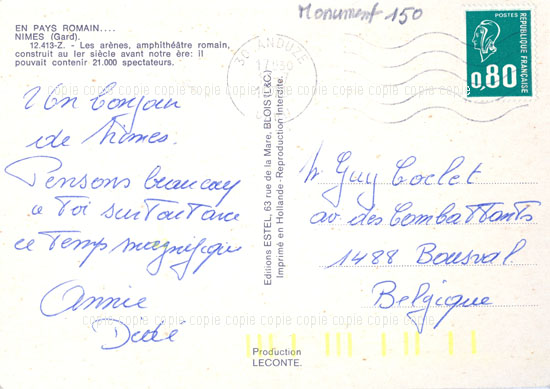 Monument 150
EN PAYS ROMAIN....
NIMES (Gard).
12.413-Z. - Les arènes, amphithéâtre romain,
construit au Ier siècle avant notre ère: Il
pouvait contenir 21.000 spectateurs.
30 ANDUZE
POSTES
RÉPUBLIQUE FRANÇAISE
0,80
Un bonjour
de Nimes.
Pensons beaucoup
a Toi surtout avec
ce Temps magnifique
Annie
Dédé
Editions ESTEL, 63 rue de la Mare, BLOIS (L&C)
Imprimé en Hollande - Reproduction Interdite.
Guy Coclet
av des Combattants
1488 Bousval
Belgique
copie copie copie copie copie copie copie copie copie copie
Production
LECONTE.